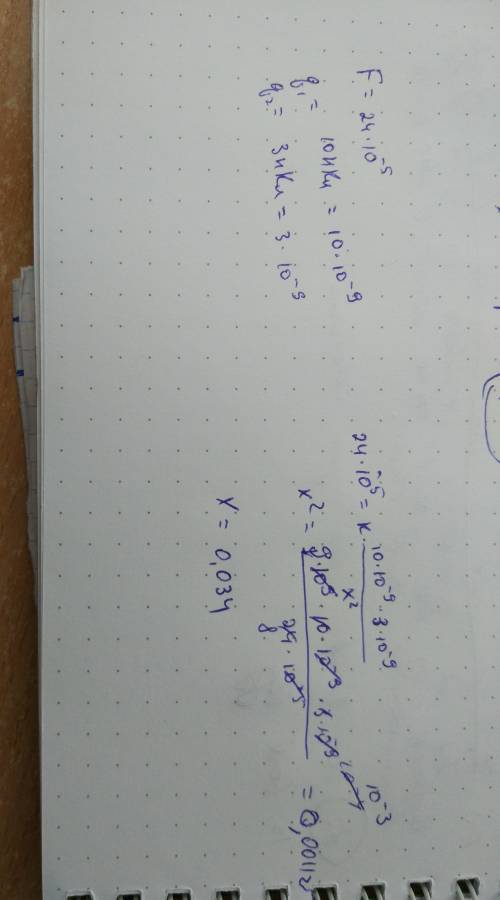 F = 24·10⁻⁵
q₁ = 10нКл = 10·10⁻⁹
q₂ = 3нКл = 3·10⁻⁹
24·10⁻⁵ = k· 10·10⁻⁹·3·10⁻⁹ / x²
x² = 9·10⁹·10·10⁻⁹·3·10⁻⁹ / 24·10⁻⁵ = 0,001125
8
10⁻³
x = 0,034